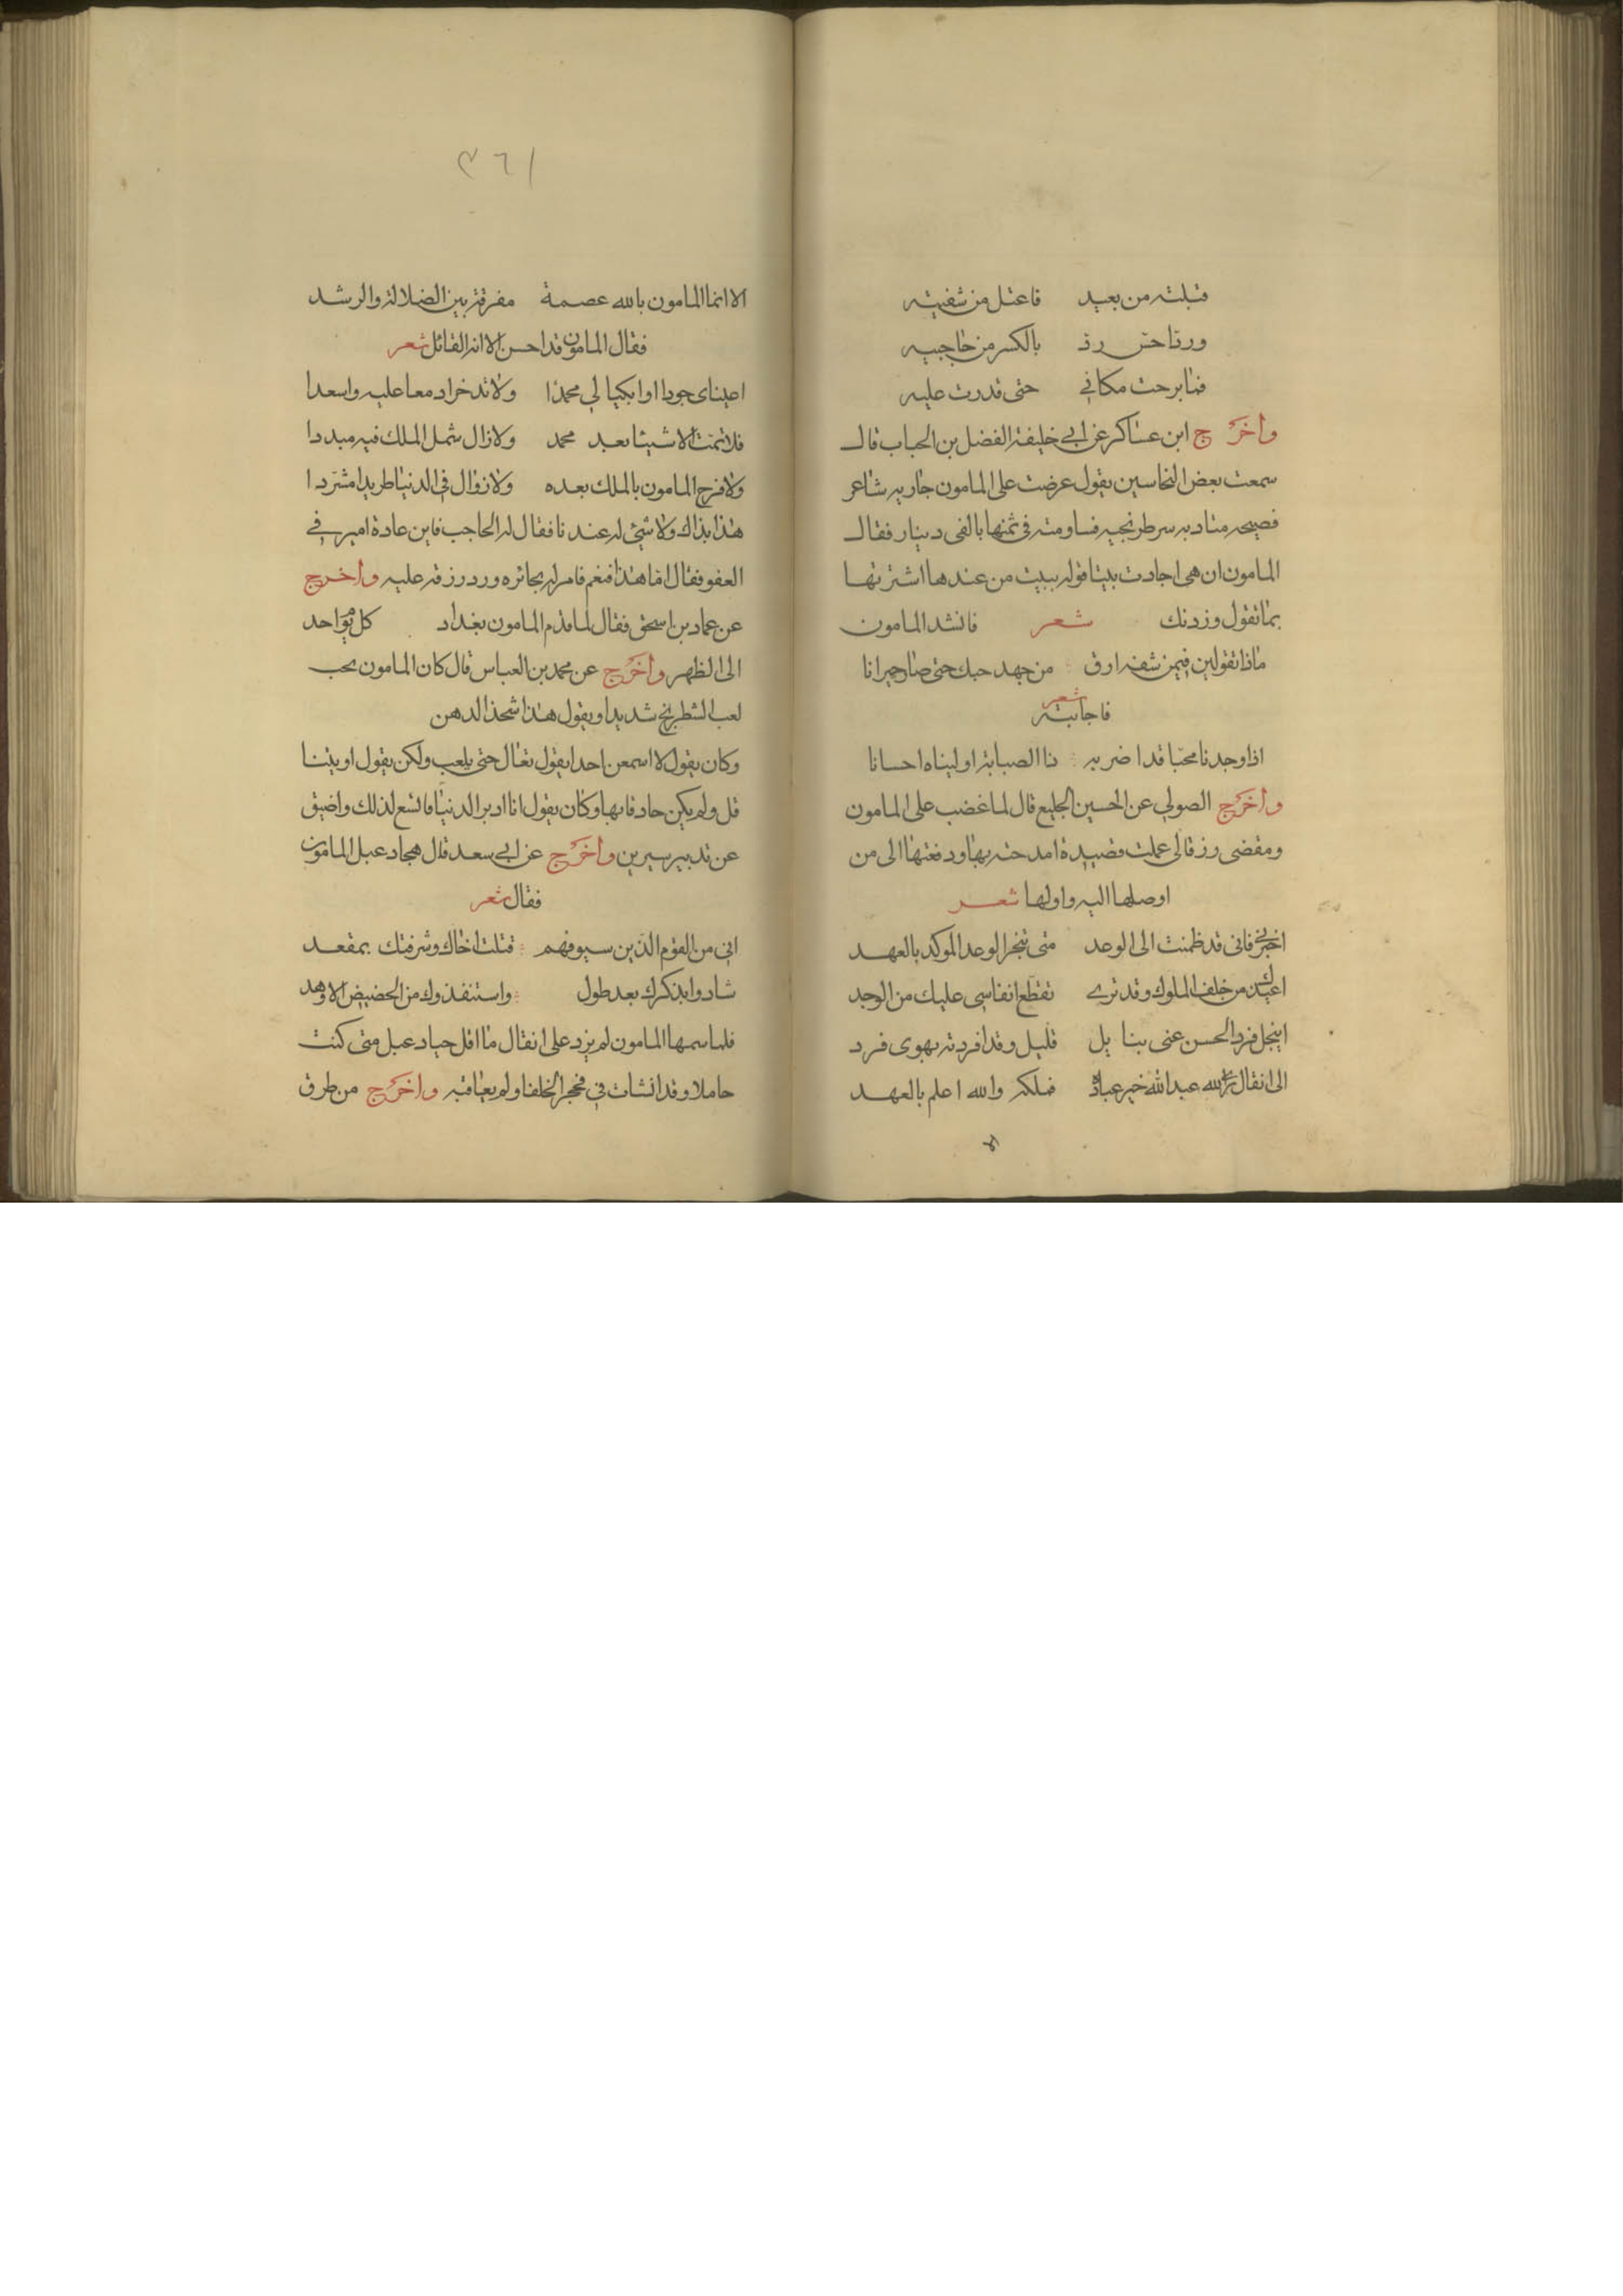 قبلته من بعيد فاعتل من شفتيه
ورد احسن رد بالكسر من حاجبيه
فما برحت مكاني حتى قدرت عليه
وأخرج ابن عساكر عن ابي خليفة الفضل بن الحباب قال
سمعت بعض النخاسين يقول عرضت على المامون جاريه شاعر
فصيحه متادبه سرطرنجيه فساومته في ثمنها بالفى دينار فقال
المامون ان هى اجادت بيتا قوله ببيت من عندها اشتريتها
بما تقول وزدنك شعر فانشد المامون
ماذا تقولين فيمن شفه ارق من جهد حبك حتى صار حيرانا
شعر
فاجابته
اذا وجدنا محبا قد اضر به دا الصبابة اوليناه احسانا
وأخرج الصولي عن الحسين الخليع قال لما غضب على المامون
ومقضى رزقا لى عملت قصيدة امدحته بها ودفعتها الى من
اوصلها اليه واولها شعر
اجرني فانى قد ظمئت الى الوعد متى تنجز الوعد الموكد بالعهد
اعيذك من خلف الملوك وقد ترى تقطع انفاسى عليك من الوجد
ايبخل فرد الحسن عنى بنايل قليل وقد افردته بهوى فرد
الى ان قال راى الله عبد الله خير عباده فملكه والله اعلم بالعهد
٣٦١
الا انما المامون بالله عصمة مفرقة بين الضلالة والرشد
فقال المامون قد احسن الا انه القائل شعر
اعيناى جودا وابكيا لي محمدا ولا تدخرا دمعا عليه واسعدا
فلا تمت الاشيا بعد محمد ولا زال شمل الملك فيه مبددا
ولا فرح المامون بالملك بعده ولا زال في الدنيا طريدا مشردا
هذا بذاك ولا شئ له عندنا فقال له الحاجب فاين عادة امير في
العفو فقال اما هذا فنعم فامر له بجائزه ورد رزقه عليه وأخرج
عن حماد بن اسحق فقال لما قدم المامون بغداد كل يوم احد
الى الظهر وأخرج عن محمد بن العباس قال كان المامون يحب
لعب الشطرنج شديدا ويقول هذا شحذ الدهن
وكان يقول لا اسمعن احدا يقول تعال حتى يلعب ولكن يقول او يتنا
قل ولم يكن حادقا بها وكان يقول انا ادبر الدنيا فاتسع لذلك واضيق
عن تدبير سيرين وأخرج عن ابي سعد قال هجا دعبل المامون
فقال شعر
اني من القوم الذين سيوفهم قتلت اخاك وشرفتك بمقعد
شادوا بذكرك بعد طول واستنقذوك من الحضيض الاوهد
فلما سمها المامون لم يزد على ان قال ما اقل حيا دعبل متى كنت
خاملا وقد انشات في فجر الخلفا ولم يعاقبه واخرج من طرق